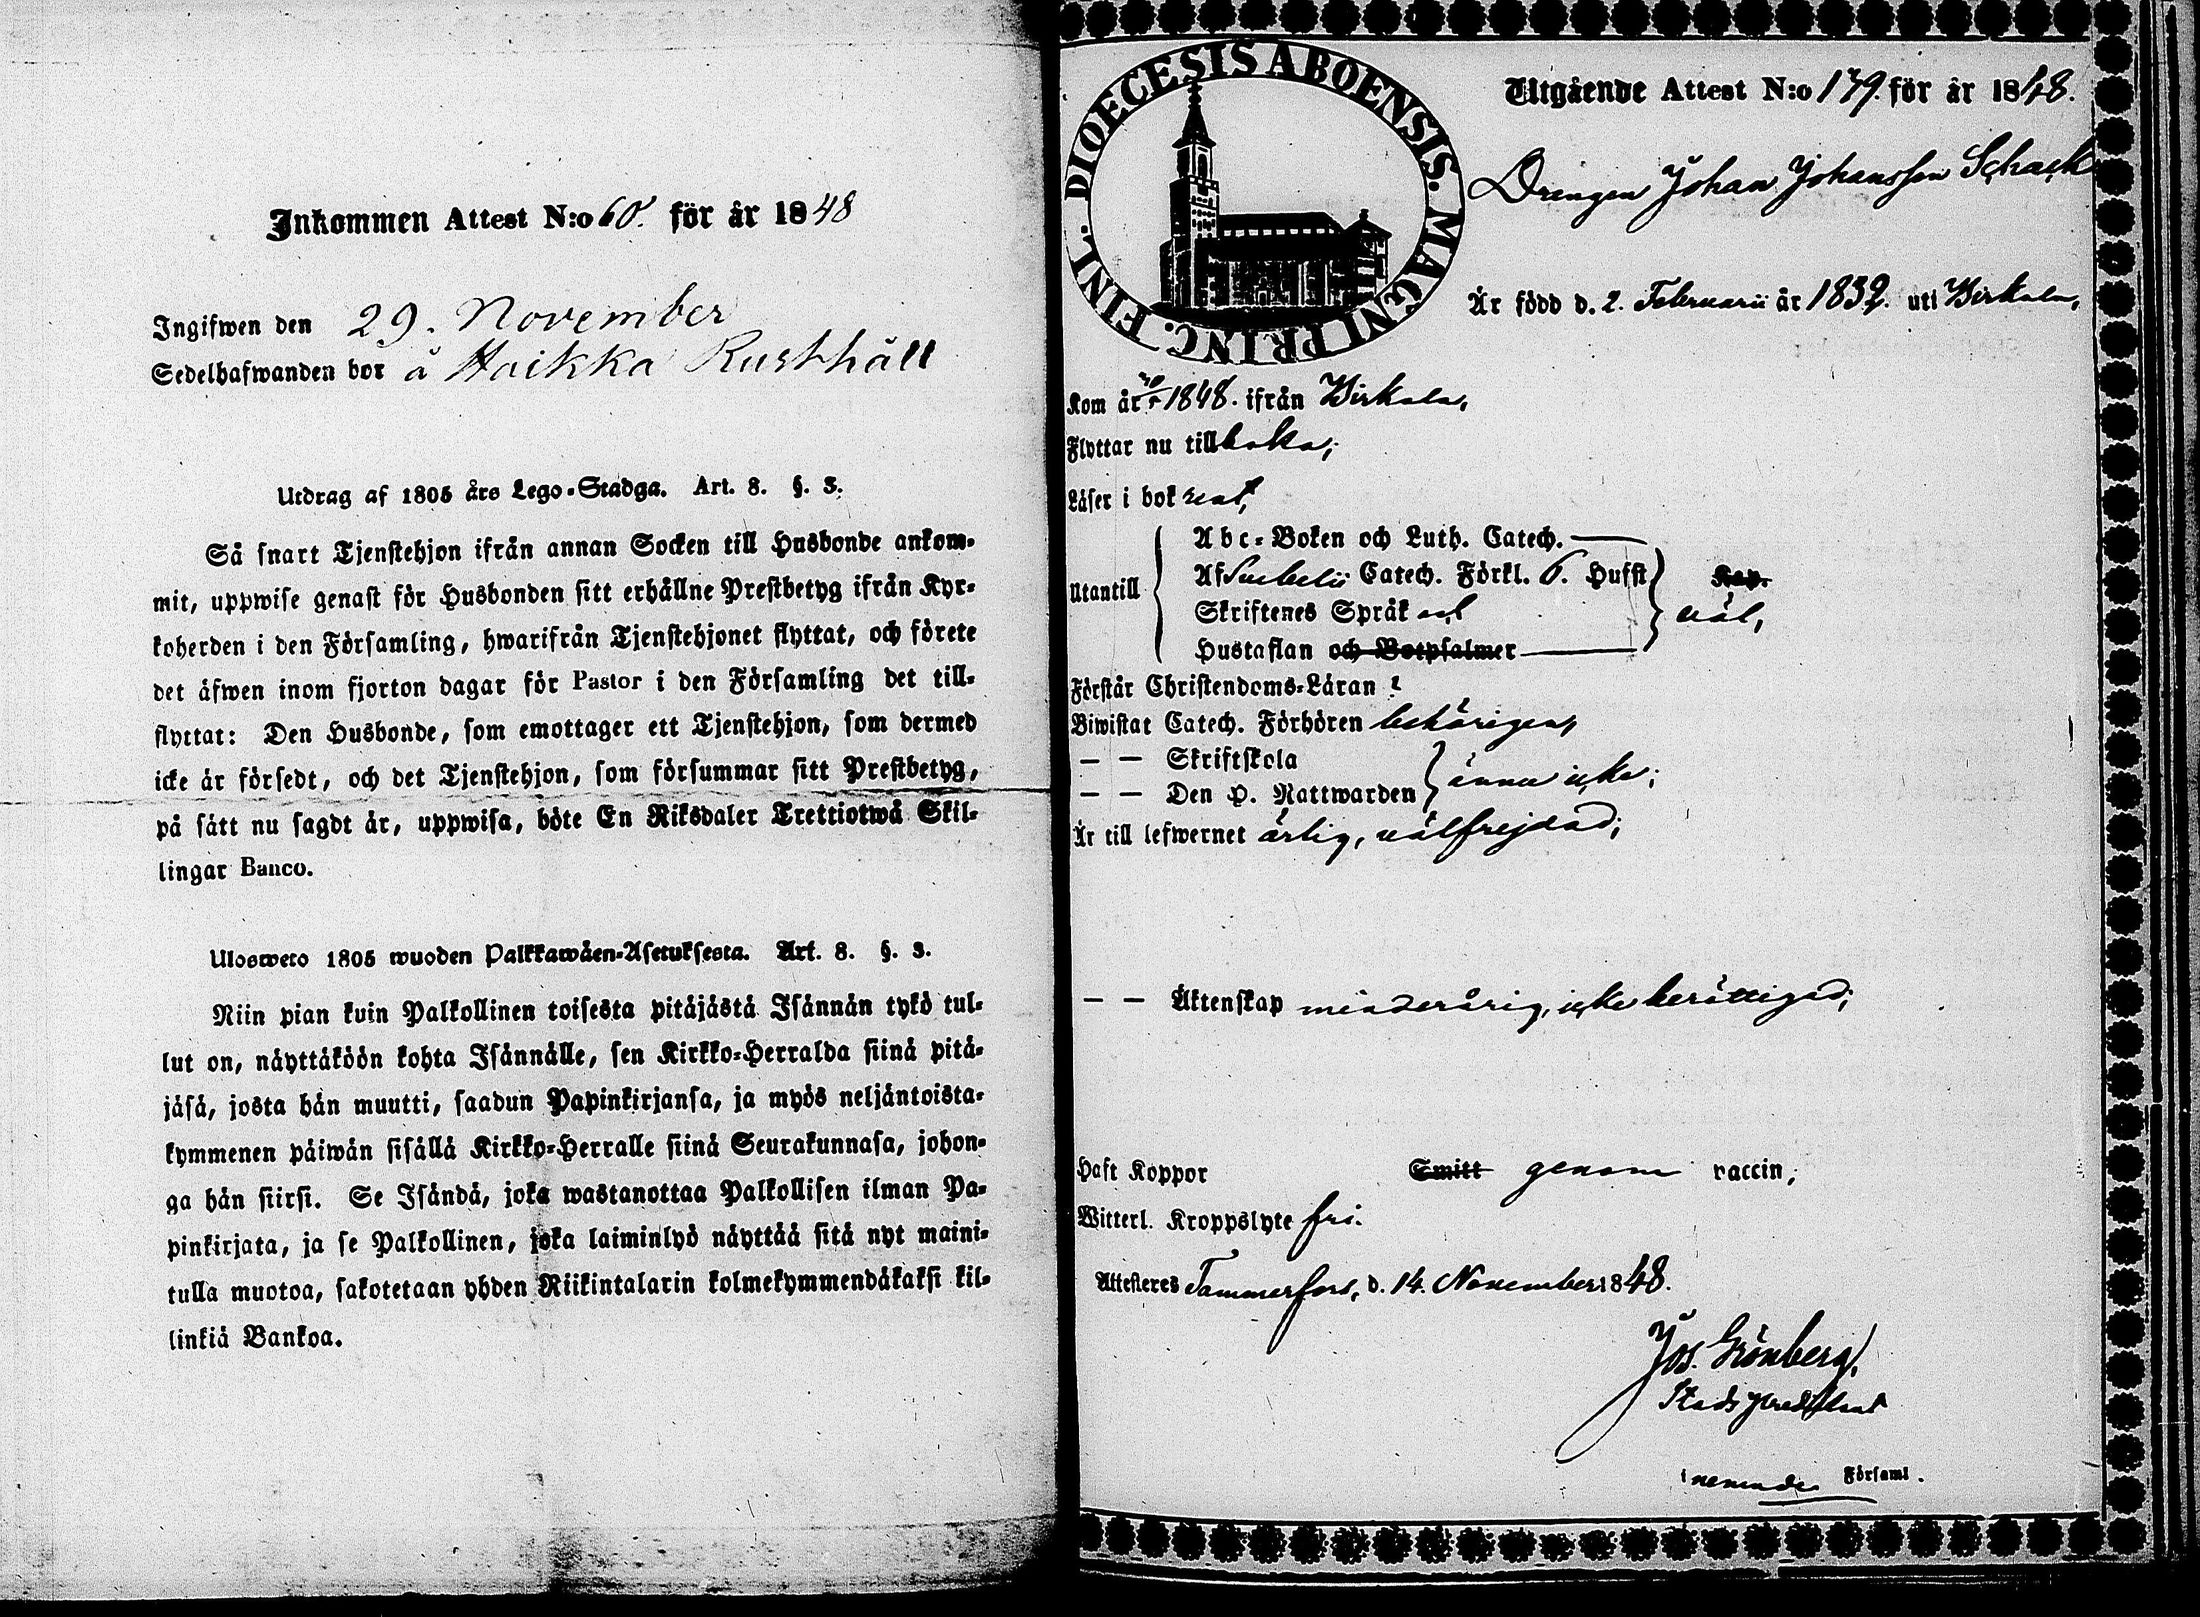 Inkommen Attest N:o 60. för år 1848
Ingifwen den 29. November
Sedelhafwanden bor å Haikka Rusthåll
Utdrag af 1805 års Lego-Stadga. Art. 8. §. 3.
Så snart Tjenstehjon ifrån annan Socken till Husbonde ankom-
mit, uppwise genast för Husbonden sitt erhållne Prestbetyg ifrån Kyr-
koherden i den Församling, hwarifrån Tjenstehjonet flyttat, och förete
det äfwen inom fjorton dagar för Pastor i den Församling det till-
flyttat: Den Husbonde, som emottager ett Tjenstehjon, som dermed
icke är försedt, och det Tjenstehjon, som försummar sitt Prestbetyg,
på sätt nu sagdt är, uppwisa, böte En Riksdaler Trettiotwå Skil-
lingar Banco.
Ulosweto 1805 wuoden Palkkawäen-Asetuksesta. Art. 8. §. 3.
Niin pian kuin Palkollinen toisesta pitäjästä Isännän tykö tul-
lut on, näyttäköön kohta Isännälle, sen Kirkko-Herralda siinä pitä-
jäsä, josta hän muutti, saadun Papinkirjansa, ja myös neljäntoista-
kymmenen päiwän sisällä Kirkko-Herralle siinä Seurakunnasa, johon-
ga hän siirsi. Se Isändä, joka wastanottaa Palkollisen ilman Pa-
pinkirjata, ja se Palkollinen, joka laiminlyö näyttää sitä nyt maini-
tulla muotoa, sakotetaan yhden Riikintalarin kolmekymmendäkaksi kil-
linkiä Bankoa.
DIOECESIS ABOENSIS. MAGNI PRINC. FINL.
Utgående Attest N:o 139. för år 1848.
Drengen Johan Johansson Schack
Är född d. 2. Februarii år 1832. uti Birkala,
Kom år 1848. ifrån Birkala,
Flyttar nu tillbaka;
Läser i bok rent,
Utantill
Abc-Boken och Luth. Catech.
Af Svebelii Catech. Förkl. 6. Hufst
Skriftenes Språk och
Hustaflan och Botpsalmer
väl,
Förstår Christendoms-Läran
Biwistat Catech. Förhören behörigen,
— — Skriftskola
— — Den H. Nattwarden
ännu icke;
Är till lefwernet ärlig, välfrejdad;
— — Äktenskap minderårig, icke berättigad;
Haft Koppor Smitt genom vaccin;
Witterl. Kroppslyte fri.
Attesteres Tammerfors, d. 14. November 1848.
Jos. Grönberg,
Stads Predikant
i nemnde Församl.